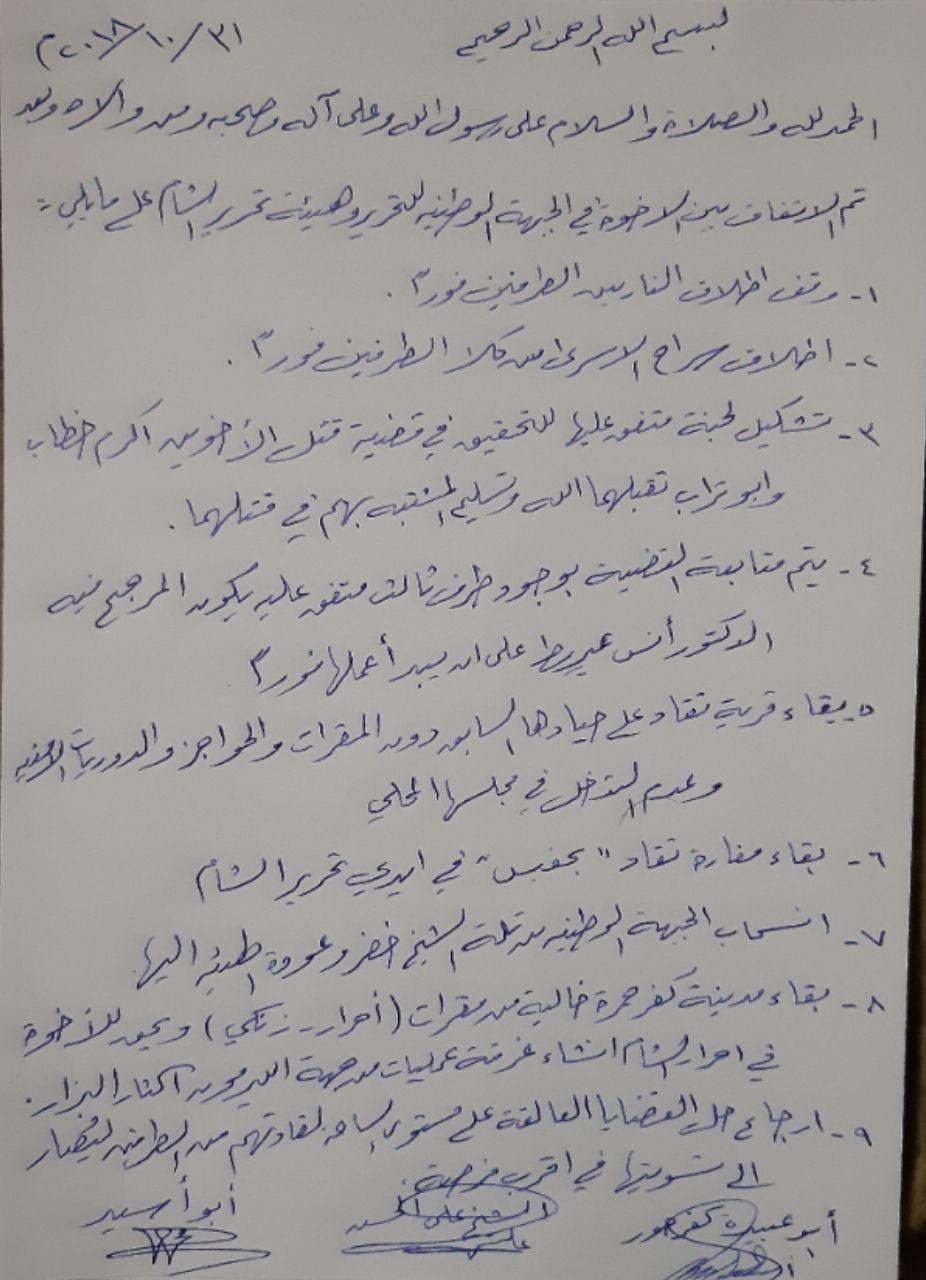 بسم الله الرحمن الرحيم ٣١/١٠/٢٠١٨م
الحمد لله والصلاة والسلام على رسول الله وعلى آله وصحبه ومن والاه وبعد
تم الاتفاق بين الاخوة في الجبهة الوطنية للتحرير وهيئة تحرير الشام على مايلي :
١- وقف اطلاق النار بين الطرفين فوراً .
٢- اطلاق سراح الاسرى من كلا الطرفين فوراً .
٣- تشكيل لجنة متفق عليها للتحقيق في قضية قتل الأخوين اكرم خطاب
وابو تراب تقبلهما الله وتسليم المشتبه بهم في قتلهما .
٤- يتم متابعة القضية بوجود طرف ثالث متفق عليه يكون المرجح فيه
الدكتور أنس عيروط على ان يبدأ عملها فوراً .
٥- بقاء قرية تقاد على حيادها السابق دون المقرات والحواجز والدوريات الامنية
وعدم التدخل في مجلسها المحلي
٦- بقاء مغارة تقاد " بحفيس " في ايدي تحرير الشام
٧- انسحاب الجبهة الوطنية من تلة الشيخ خضر وعودة الهيئة اليها.
٨- بقاء مدينة كفرحمرة خالية من مقرات (أحرار - زنكي) ويحق للأخوة
في احرار الشام انشاء غرفة عمليات من جهة الليرمون اكثار البذار .
٩- ارجاع حل القضايا العالقة على مستوى الساحة لقادتهم من الطرفين ليصار
الى تسويتها في اقرب فرصة
أبو عبيدة كفرحور الشيخ علي أبو أسيد